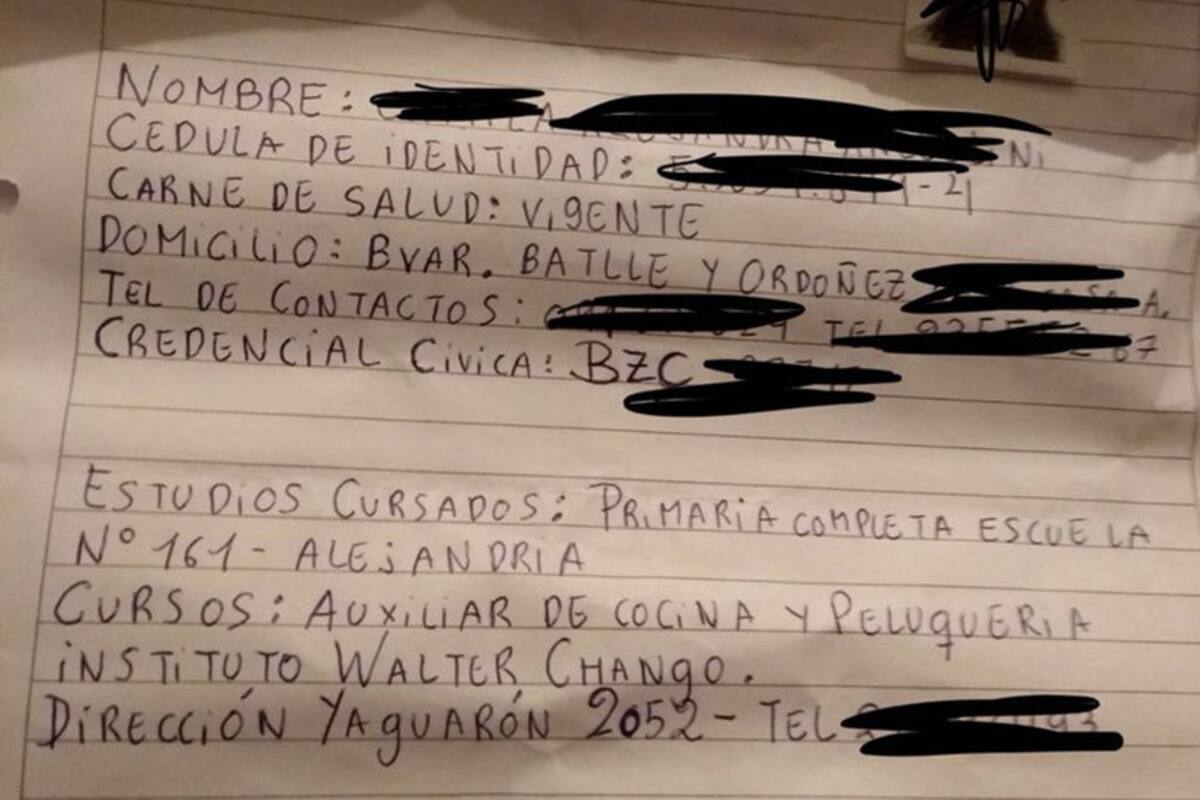 NOMBRE:
CEDULA DE IDENTIDAD:
CARNE DE SALUD: VIGENTE
DOMICILIO: BVAR. BATLLE Y ORDOÑEZ A.
TEL DE CONTACTOS: TEL
CREDENCIAL CIVICA: BZC
ESTUDIOS CURSADOS: PRIMARIA COMPLETA ESCUELA
Nº 161 - ALEJANDRIA
CURSOS: AUXILIAR DE COCINA Y PELUQUERIA
INSTITUTO WALTER CHANGO.
DIRECCIÓN YAGUARÓN 2052 - TEL